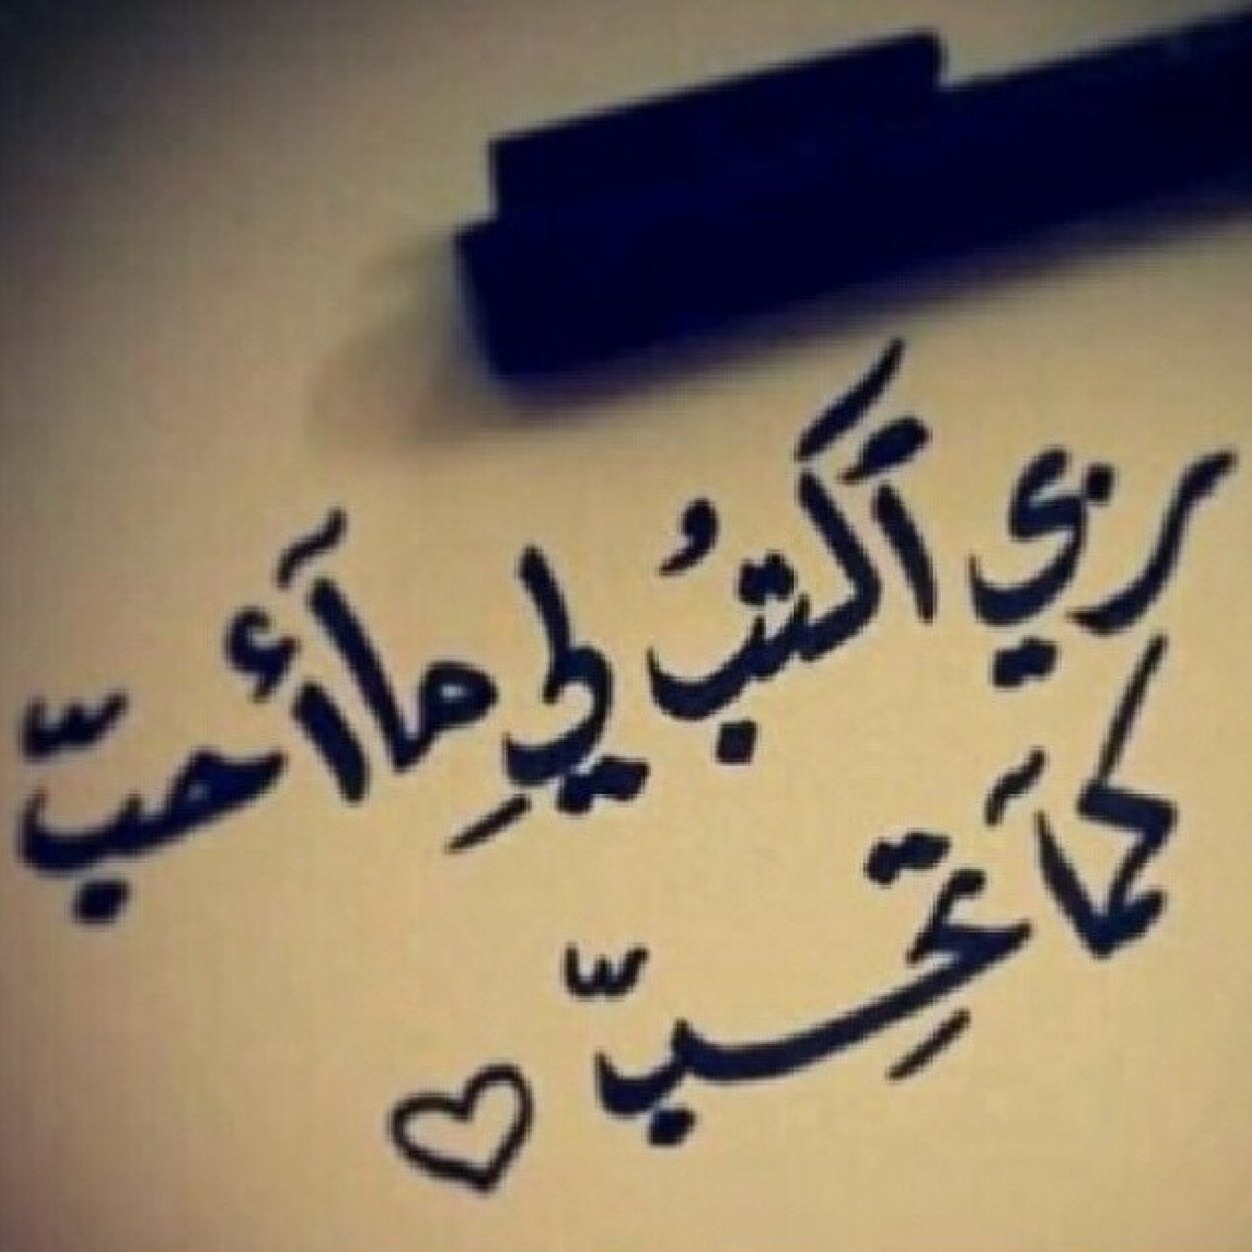 ربي أكتبُ لِي مآ أحبّ
كمآ تحِبّ